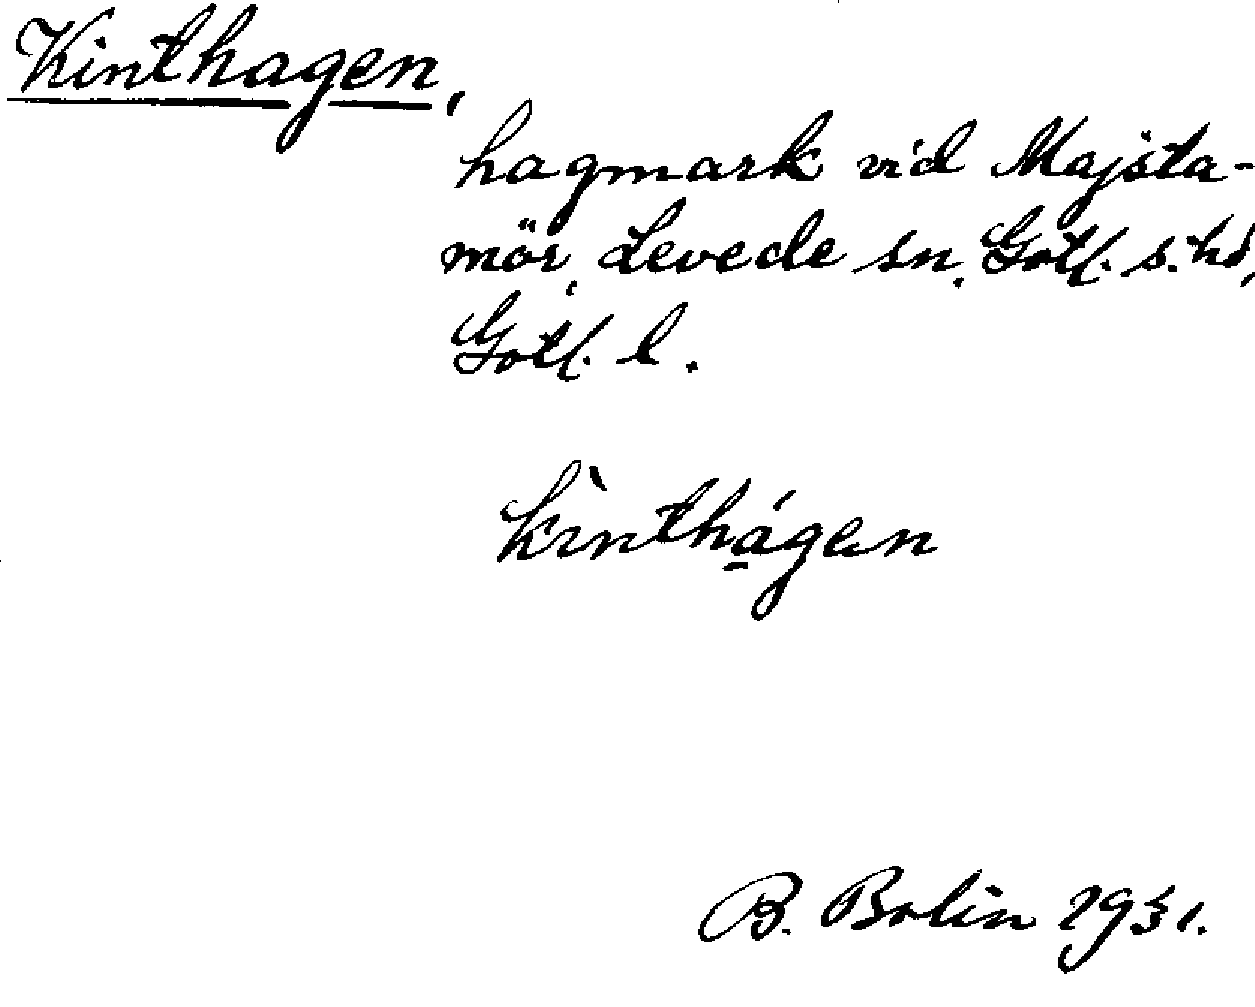 Kinthagen,
hagmark vid Majsta-
mör, Levede sn, Gotl. s. hd,
Gotl. l.
kìnthágen
B. Bolin 1931.